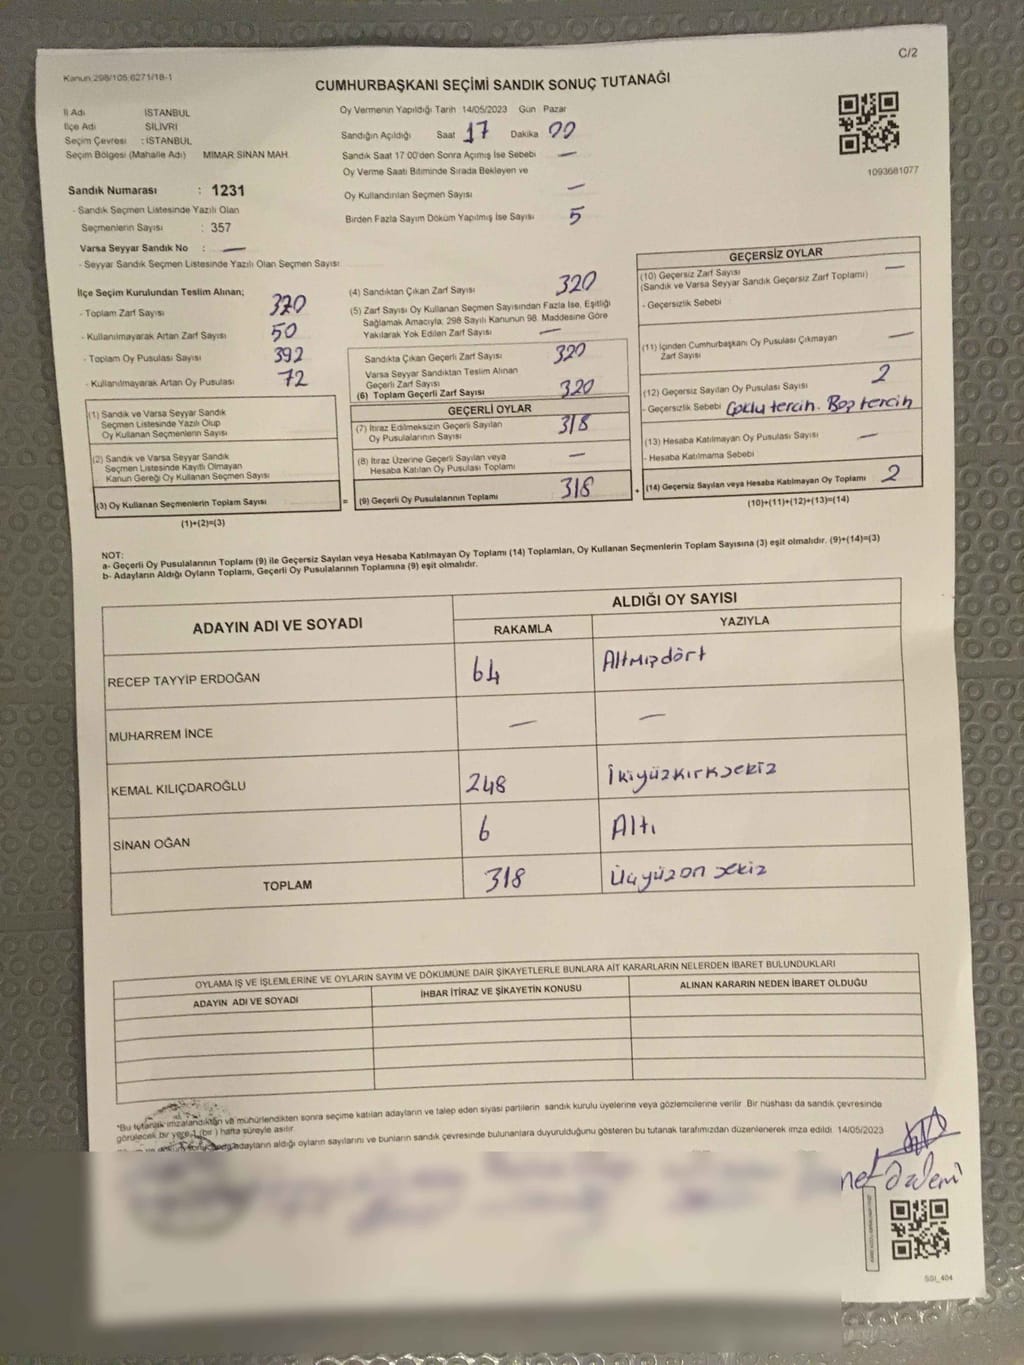 C/2
Kanun 298/105,6271/18-1
CUMHURBAŞKANI SEÇİMİ SANDIK SONUÇ TUTANAĞI
İl Adı İSTANBUL
İlçe Adı SİLİVRİ
Seçim Çevresi : İSTANBUL
Seçim Bölgesi (Mahalle Adı) MİMAR SİNAN MAH.
Sandık Numarası : 1231
- Sandık Seçmen Listesinde Yazılı Olan
Seçmenlerin Sayısı : 357
Varsa Seyyar Sandık No : —
- Seyyar Sandık Seçmen Listesinde Yazılı Olan Seçmen Sayısı
Oy Vermenin Yapıldığı Tarih 14/05/2023 Gün Pazar
Sandığın Açıldığı Saat 17 Dakika 00
Sandık Saat 17 00'den Sonra Açımış İse Sebebi —
Oy Verme Saati Bitiminde Sırada Bekleyen ve
Oy Kullandırılan Seçmen Sayısı —
Birden Fazla Sayım Döküm Yapılmış İse Sayısı 5
1093681077
İlçe Seçim Kurulundan Teslim Alınan;
- Toplam Zarf Sayısı 370
- Kullanılmayarak Artan Zarf Sayısı 50
- Toplam Oy Pusulası Sayısı 392
- Kullanılmayarak Artan Oy Pusulası 72
(1) Sandık ve Varsa Seyyar Sandık
Seçmen Listesinde Yazılı Olup
Oy Kullanan Seçmenlerin Sayısı
(2) Sandık ve Varsa Seyyar Sandık
Seçmen Listesinde Kayıtlı Olmayan
Kanun Gereği Oy Kullanan Seçmen Sayısı
(3) Oy Kullanan Seçmenlerin Toplam Sayısı =
(1)+(2)=(3)
(4) Sandıktan Çıkan Zarf Sayısı 320
(5) Zarf Sayısı Oy Kullanan Seçmen Sayısından Fazla İse, Eşitliği
Sağlamak Amacıyla; 298 Sayılı Kanunun 98. Maddesine Göre
Yakılarak Yok Edilen Zarf Sayısı —
Sandıkta Çıkan Geçerli Zarf Sayısı 320
Varsa Seyyar Sandıktan Teslim Alınan
Geçerli Zarf Sayısı
(6) Toplam Geçerli Zarf Sayısı 320
GEÇERLİ OYLAR
(7) İtiraz Edilmeksizin Geçerli Sayılan
Oy Pusulalarının Sayısı 318
(8) İtiraz Üzerine Geçerli Sayılan veya
Hesaba Katılan Oy Pusulası Toplamı —
(9) Geçerli Oy Pusulalarının Toplamı 318 +
GEÇERSİZ OYLAR
(10) Geçersiz Zarf Sayısı —
(Sandık ve Varsa Seyyar Sandık Geçersiz Zarf Toplamı)
- Geçersizlik Sebebi
(11) İçinden Cumhurbaşkanı Oy Pusulası Çıkmayan
Zarf Sayısı —
(12) Geçersiz Sayılan Oy Pusulası Sayısı 2
- Geçersizlik Sebebi Çoklu tercih. Boş tercih
(13) Hesaba Katılmayan Oy Pusulası Sayısı —
- Hesaba Katılmama Sebebi
(14) Geçersiz Sayılan veya Hesaba Katılmayan Oy Toplamı 2
(10)+(11)+(12)+(13)=(14)
NOT:
a- Geçerli Oy Pusulalarının Toplamı (9) ile Geçersiz Sayılan veya Hesaba Katılmayan Oy Toplamı (14) Toplamları, Oy Kullanan Seçmenlerin Toplam Sayısına (3) eşit olmalıdır. (9)+(14)=(3)
b- Adayların Aldığı Oyların Toplamı, Geçerli Oy Pusulalarının Toplamına (9) eşit olmalıdır.
ADAYIN ADI VE SOYADI ALDIĞI OY SAYISI
RAKAMLA YAZIYLA
RECEP TAYYİP ERDOĞAN 64 Altmışdört
MUHARREM İNCE — —
KEMAL KILIÇDAROĞLU 248 İkiyüzkırksekiz
SİNAN OĞAN 6 Altı
TOPLAM 318 Üçyüzon sekiz
OYLAMA İŞ VE İŞLEMLERİNE VE OYLARIN SAYIM VE DÖKÜMÜNE DAİR ŞİKAYETLERLE BUNLARA AİT KARARLARIN NELERDEN İBARET BULUNDUKLARI
ADAYIN ADI VE SOYADI İHBAR İTİRAZ VE ŞİKAYETİN KONUSU ALINAN KARARIN NEDEN İBARET OLDUĞU
*Bu tutanak imzalandıktan ve mühürlendikten sonra seçime katılan adayların ve talep eden siyasi partilerin sandık kurulu üyelerine veya gözlemcilerine verilir. Bir nüshası da sandık çevresinde
görülecek bir yere 1 (bir) hafta süreyle asılır.
adayların aldığı oyların sayılarını ve bunların sandık çevresinde bulunanlara duyurulduğunu gösteren bu tutanak tarafımızdan düzenlenerek imza edildi. 14/05/2023
SGI_404